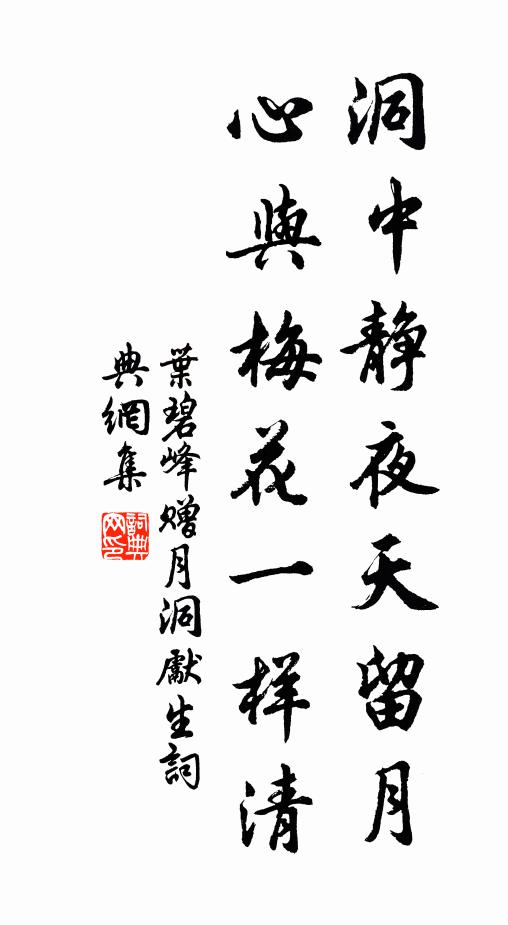 洞中静夜天留月
心與梅花一样清
葉碧峰赠月洞獻生詞
典網集
詞典
网印